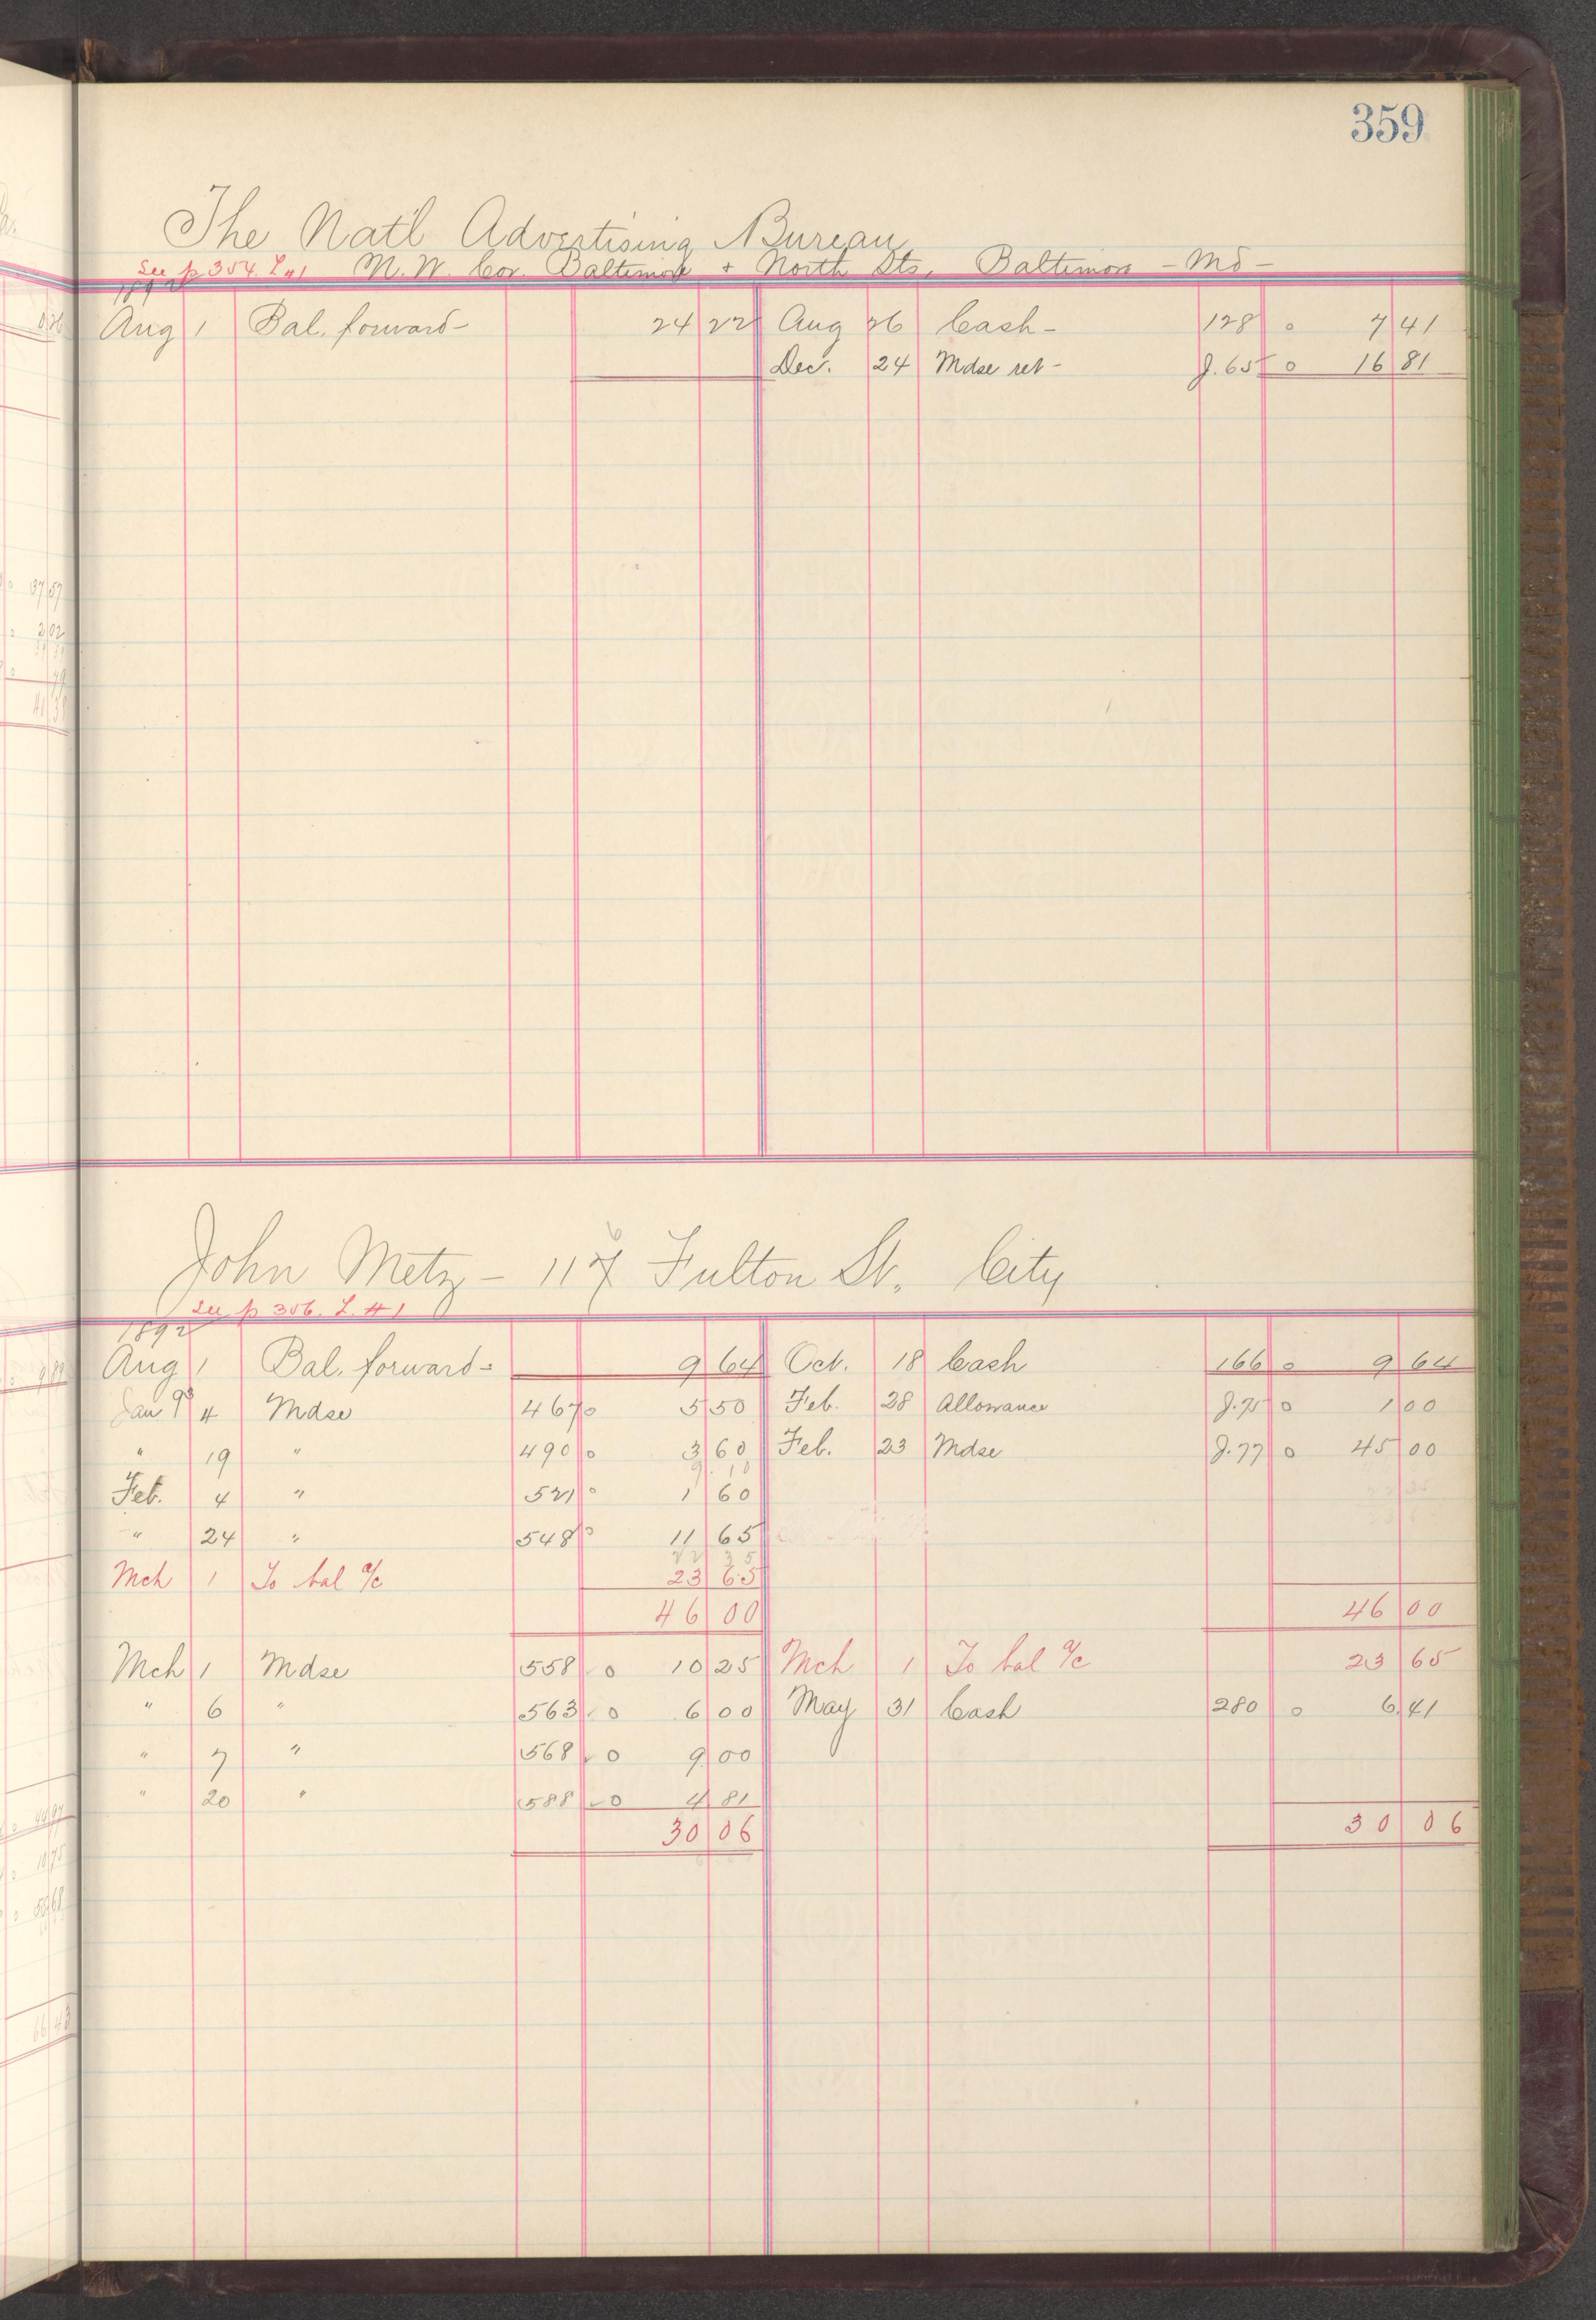 359
The Nat'l Advertising Bureau
See p 354. L #1 N.W. Cor. Baltimore + North Sts, Baltimore - Md -
1892
Aug 1 Bal. forward - 24 22 Aug 26 Cash - 128 o 7 41
Dec. 24 Mdse ret - J. 65 o 16 81
John Metz - 117 Fulton St. City
6
See p 306. L. #1
1892
Aug 1 Bal. forward - 9 64 Oct. 18 Cash 166 o 9 64
Jan 93 4 Mdse 467 o 5 50 Feb. 28 Allowance J. 75 o 1 00
" 19 " 490 o 3 60 Feb. 23 Mdse J. 77 o 45 00
9 10
Feb. 4 " 521 o 1 60
" 24 " 548 o 11 65
22 35
Mch 1 To bal a/c 23 65
46 00 46 00
Mch 1 Mdse 558 o 10 25 Mch 1 To bal a/c 23 65
" 6 " 563 o 6 00 May 31 Cash 280 o 6 41
" 7 " 568 o 9 00
" 20 " 588 o 4 81
30 06 30 06